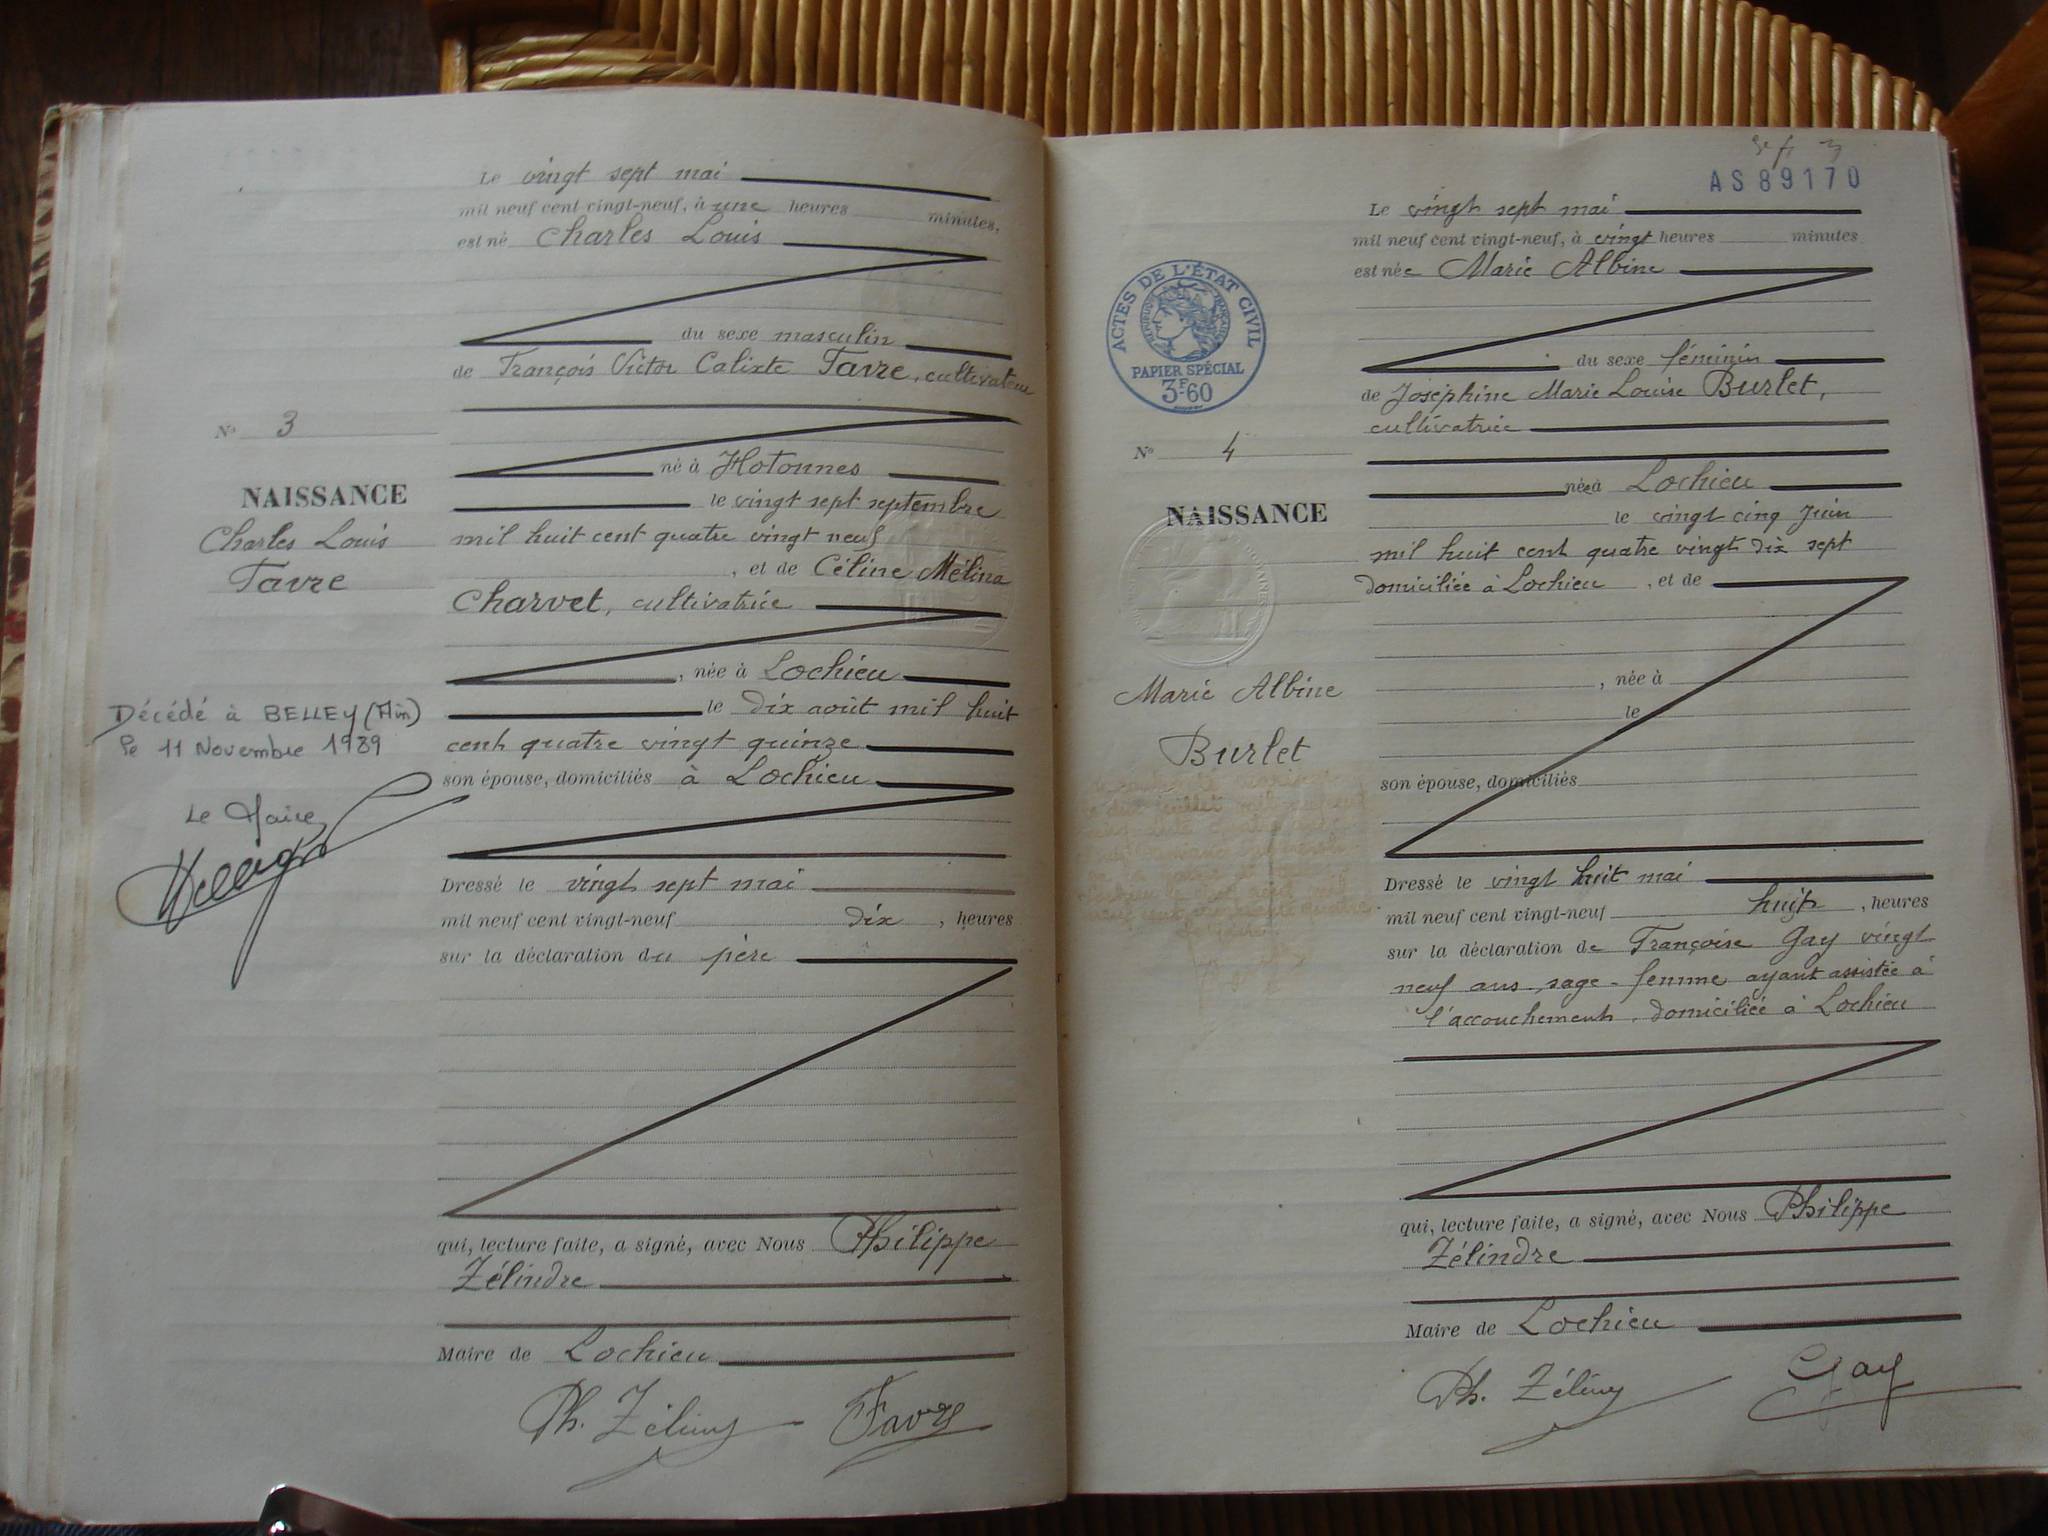 Le vingt sept mai
mil neuf cent vingt-neuf, à une heures minutes,
est né Charles Louis
du sexe masculin
de François Victor Calixte Favre, cultivateur
N° 3
né à Hotonnes
NAISSANCE
le vingt sept septembre
Charles Louis
mil huit cent quatre vingt neuf
Favre
, et de Céline Mélina
Charvet, cultivatrice
, née à Lochieu
Décédé à BELLEY (Ain)
le dix août mil huit
le 11 Novembre 1989
cent quatre vingt quinze
son épouse, domiciliés à Lochieu
Le Maire
Dressé le vingt sept mai
mil neuf cent vingt-neuf dix, heures
sur la déclaration du père
qui, lecture faite, a signé, avec Nous Philippe
Zélindre
Maire de Lochieu
Ph. Zélindre Favre
AS 89170
Le vingt sept mai
mil neuf cent vingt-neuf, à vingt heures minutes
est née Marie Albine
ACTES DE L'ÉTAT CIVIL
RÉPUBLIQUE FRANÇAISE
PAPIER SPÉCIAL
3F-60
du sexe féminin
de Joséphine Marie Louise Burlet,
cultivatrice
N° 4
née à Lochieu
NAISSANCE
le vingt cinq Juin
mil huit cent quatre vingt dix sept
domiciliée à Lochieu, et de
, née à
Marie Albine
le
Burlet
son épouse, domiciliés
Dressé le vingt huit mai
mil neuf cent vingt-neuf huit, heures
sur la déclaration de Françoise Gay vingt
neuf ans, sage-femme ayant assistée à
l'accouchement, domiciliée à Lochieu
qui, lecture faite, a signé, avec Nous Philippe
Zélindre
Maire de Lochieu
Ph. Zélindre Gay